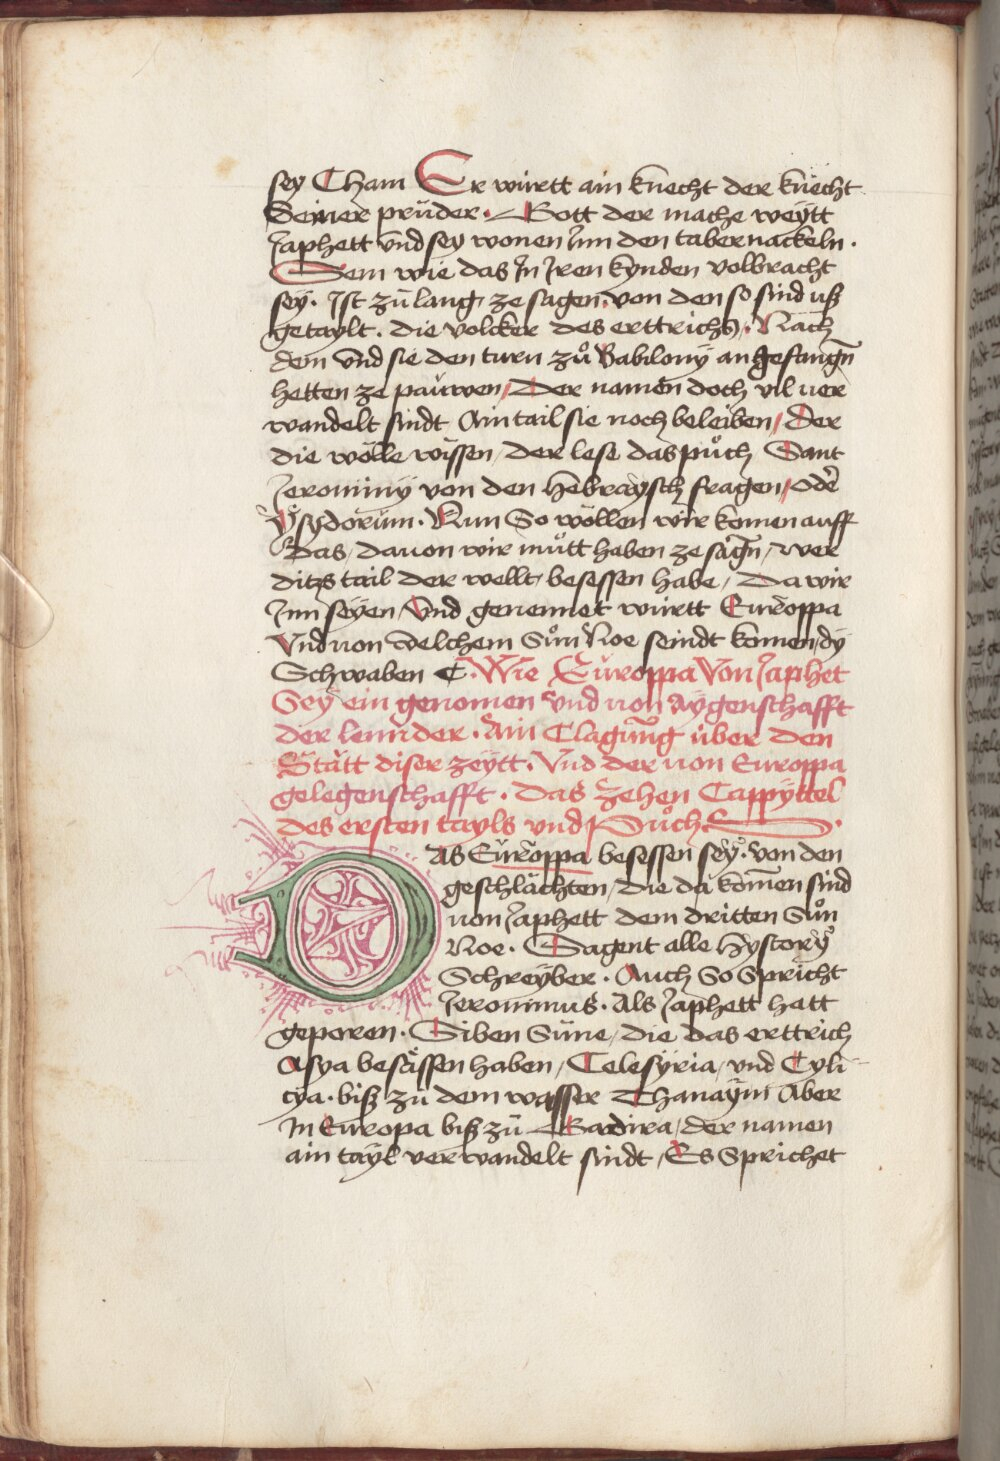 sey Cham Er württ ain knecht der knecht
Seiner prüder. Gott der mache weÿtt
Japhett vnd sey wonen Jnn den tabernackeln.
Sem wie das Jn Jren kynden volbracht
seÿ. Jst zů lang ze sagen. von den so sind uß
getaylt. die volcker des erttrichs. Nach
dem vnd sie den turn zů Babilony an gefangn̄
hetten ze pauwen / Der namen doch vil ver
wandelt sindt Ain tail sie noch beleiben / Der
die wölle wissen / der lese das půch Sant
Jeronimÿ von den Hebraysch fragen / oder
Ysydorum. Nun So wöllen wir komen auff
Das / dauon wir můtt haben ze sagn̄ / wer
ditzs tail der wellt besessen habe / Da wir
Jnn seÿen / vnd genennet württ Europpa
Vnd von welchem Sůn Noe seindt komen / dÿ
Schwaben C. Wie Europpa Von Japhet
Seÿ ein genomen vnd von Aÿgenschafft
der lennder. Ain Clagung über den
Stätt diser zeÿtt. Vnd der von Europpa
gelegenschafft. Das Zehen Cappÿttel
des ersten tayls vnd Půchs
DAs Europpa besessen seÿ. von den
geschlächten / die da kōmen sind
von Japhett dem dritten Sůn
Noe. Sagent alle Hystorÿ
Schreÿber. Auch So Spricht
Jeronimus. Als Japhett hatt
geporen. Siben Süne / die das erttrich
Asya besässen haben / Celesÿria / vnd Cyli
cya. biß zů dem wasser Thanaÿm Aber
Jn Europa biß zů Gadira / der namen
ain tayl verwandelt sindt / Es Sprichet